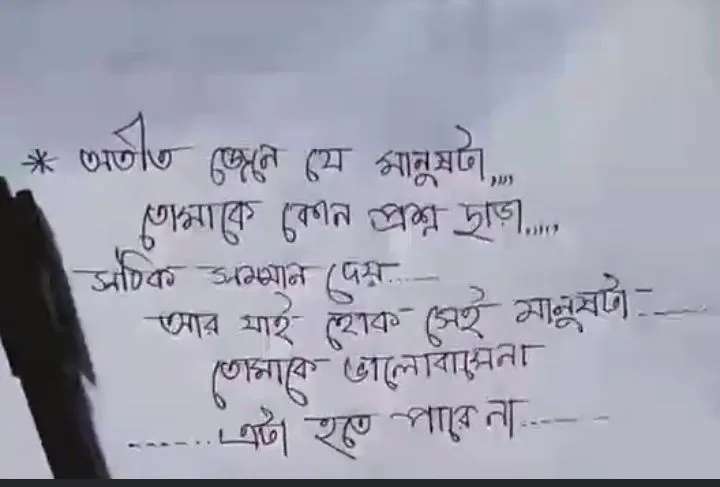 * অতীত জেনে যে মানুষটা,,,,
তোমাকে কোন প্রশ্ন ছাড়া.....
সঠিক সম্মান দেয়......
আর যাই হোক সেই মানুষটা-......
তোমাকে ভালোবাসেনা
.......এটা হতে পারে না........